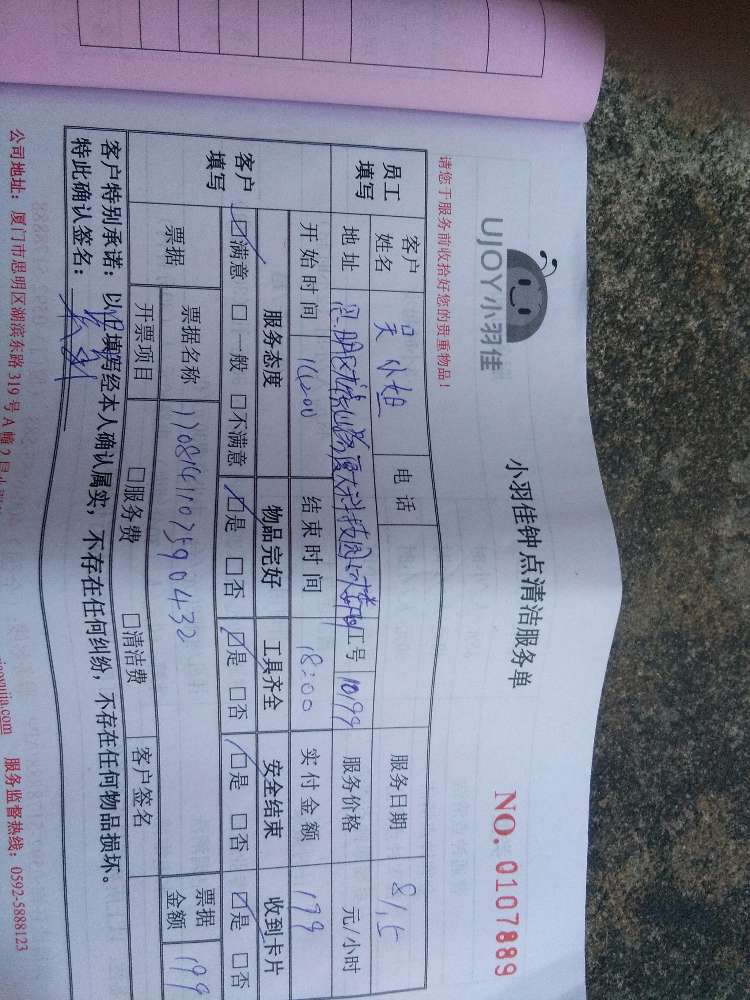 UJOY小羽佳
小羽佳钟点清洁服务单
NO. 0107889
请您于服务前收拾好您的贵重物品！
员工填写
客户姓名 吴小姐 电话 服务日期 8/15
地址 思明区 工号 10199 服务价格 元/小时
开始时间 16:00 结束时间 18:00 实付金额 199
客户填写
服务态度 物品完好 工具齐全 安全结束 收到卡片
☑满意 □一般 □不满意 ☑是 □否 ☑是 □否 ☑是 □否 ☑是 □否
票据 票据名称 1708141075990432 票据金额 199
开票项目 □服务费 □清洁费 客户签名
客户特别承诺：以上填写经本人确认属实，不存在任何纠纷，不存在任何物品损坏。
特此确认签名：
公司地址：厦门市思明区湖滨东路319号A幢2层
xiaoyujia.com 服务监督热线：0592-5888123